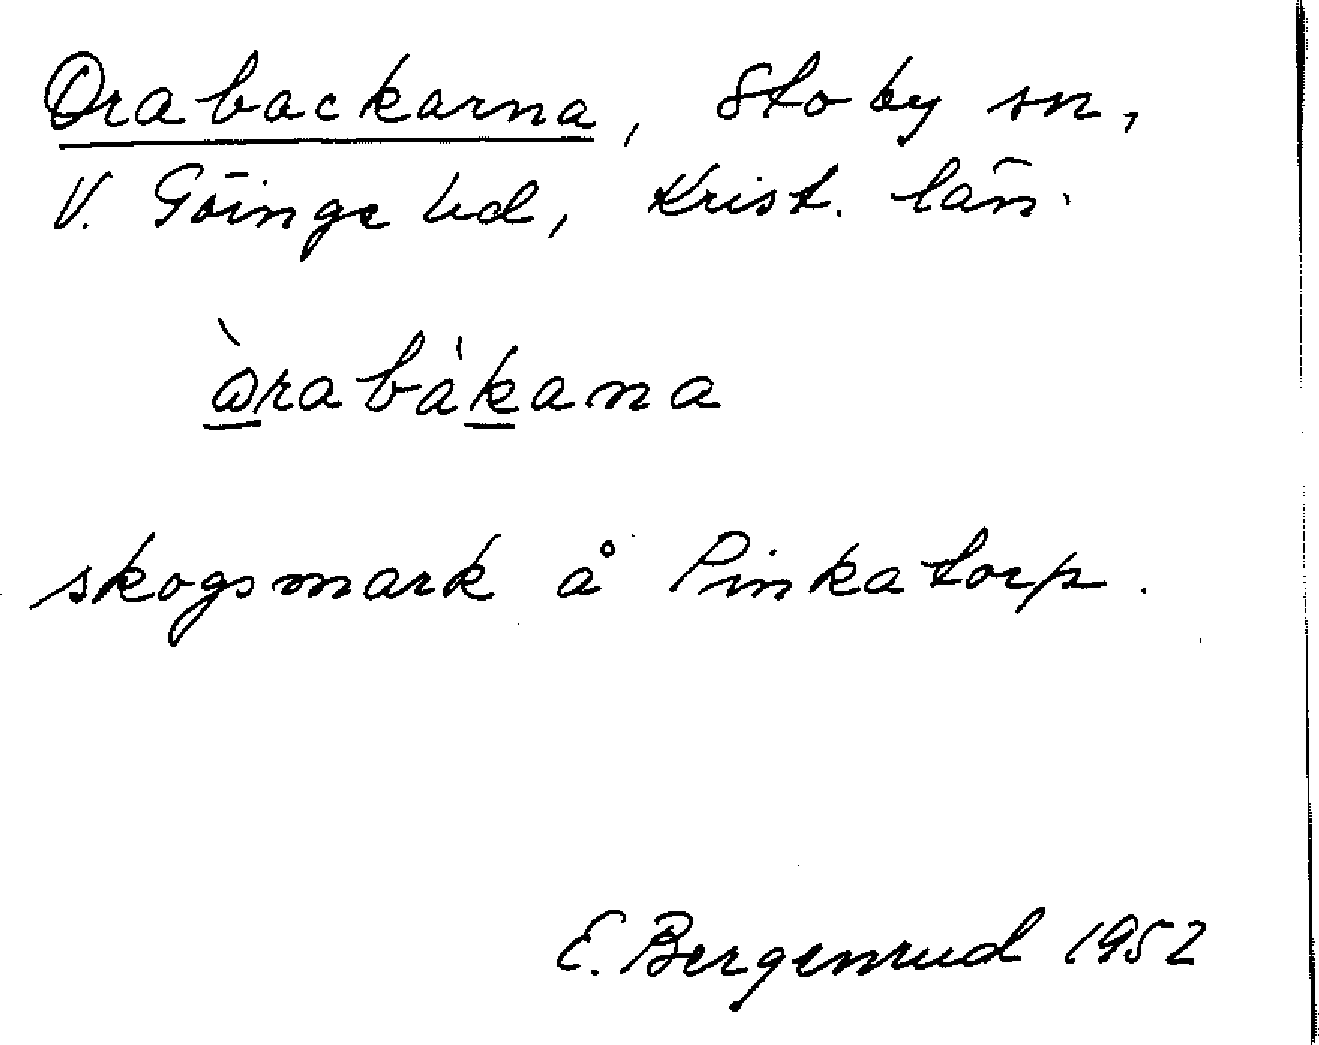 Orabackarna, Stoby sn,
V. Göinge hd, Krist. län.
ɷ̀rabákana
skogsmark å Pinkatorp.
E. Bergenrud 1952